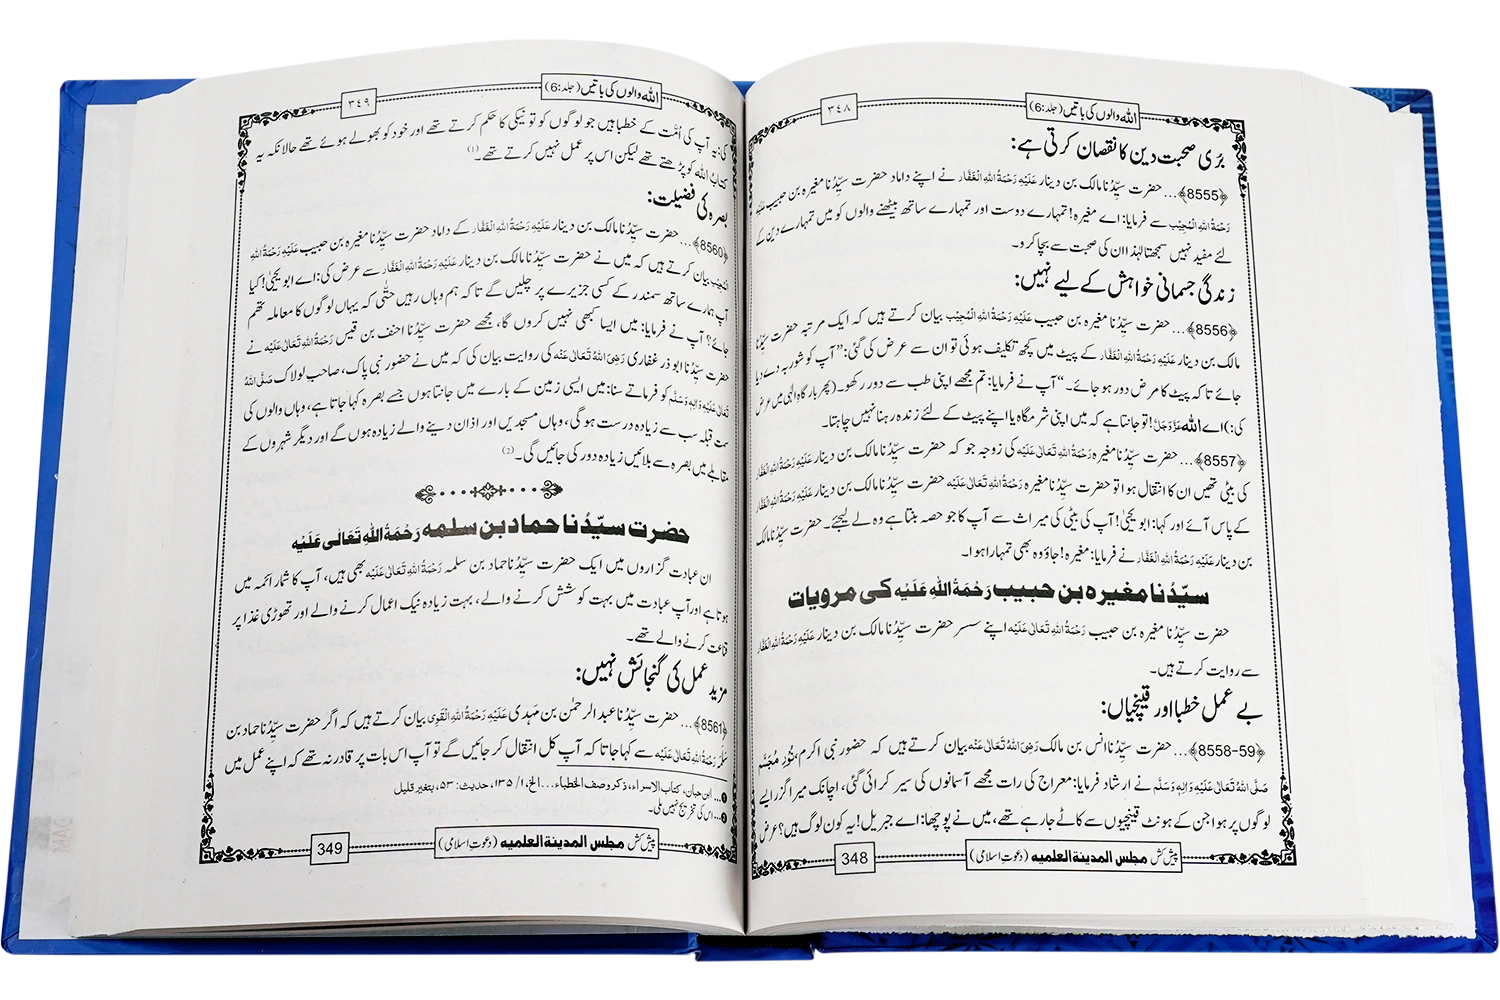 اللہ والوں کی باتیں (جلد:6)
٣٤٨
بری صحبت دین کا نقصان کرتی ہے:
﴿8555﴾... حضرت سیِّدُنا مالک بن دینار عَلَیْہِ رَحْمَۃُ اللہِ الْغَفَّار نے اپنے داماد حضرت سیِّدُنا مغیرہ بن حبیب عَلَیْہِ
رَحْمَۃُ اللہِ الْمُجِیْب سے فرمایا: اے مغیرہ! تمہارے دوست اور تمہارے ساتھ بیٹھنے والوں کو میں تمہارے دین کے
لئے مفید نہیں سمجھتا لہٰذا ان کی صحبت سے بچا کرو۔
زندگی جسمانی خواہش کے لیے نہیں:
﴿8556﴾... حضرت سیِّدُنا مغیرہ بن حبیب عَلَیْہِ رَحْمَۃُ اللہِ الْمُجِیْب بیان کرتے ہیں کہ ایک مرتبہ حضرت سیِّدُنا
مالک بن دینار عَلَیْہِ رَحْمَۃُ اللہِ الْغَفَّار کے پیٹ میں کچھ تکلیف ہوئی تو ان سے عرض کی گئی: ”آپ کو شوربہ دے دیا
جائے تاکہ پیٹ کا مرض دور ہو جائے۔“ آپ نے فرمایا: تم مجھے اپنی طب سے دور رکھو۔ (پھر بارگاہِ الٰہی میں عرض
کی:) اے اللہ عَزَّوَجَلَّ! تو جانتا ہے کہ میں اپنی شرمگاہ یا اپنے پیٹ کے لئے زندہ رہنا نہیں چاہتا۔
﴿8557﴾... حضرت سیِّدُنا مغیرہ رَحْمَۃُ اللہِ تَعَالٰی عَلَیْہ کی زوجہ جو کہ حضرت سیِّدُنا مالک بن دینار عَلَیْہِ رَحْمَۃُ اللہِ الْغَفَّار
کی بیٹی تھیں ان کا انتقال ہوا تو حضرت سیِّدُنا مغیرہ رَحْمَۃُ اللہِ تَعَالٰی عَلَیْہ حضرت سیِّدُنا مالک بن دینار عَلَیْہِ رَحْمَۃُ اللہِ الْغَفَّار
کے پاس آئے اور کہا: ابو یحییٰ! آپ کی بیٹی کی میراث سے آپ کا جو حصہ بنتا ہے وہ لے لیجئے۔ حضرت سیِّدُنا مالک
بن دینار عَلَیْہِ رَحْمَۃُ اللہِ الْغَفَّار نے فرمایا: مغیرہ! جاؤ وہ بھی تمہارا ہوا۔
سیِّدُنا مغیرہ بن حبیب رَحْمَۃُ اللہِ عَلَیْہ کی مرویات
حضرت سیِّدُنا مغیرہ بن حبیب رَحْمَۃُ اللہِ تَعَالٰی عَلَیْہ اپنے سسر حضرت سیِّدُنا مالک بن دینار عَلَیْہِ رَحْمَۃُ اللہِ الْغَفَّار
سے روایت کرتے ہیں۔
بے عمل خطبا اور قینچیاں:
﴿8558-59﴾... حضرت سیِّدُنا انس بن مالک رَضِیَ اللہُ تَعَالٰی عَنْہ بیان کرتے ہیں کہ حضور نبی اکرم، نُورِ مُجَسَّم
صَلَّی اللہُ تَعَالٰی عَلَیْہِ وَاٰلِہٖ وَسَلَّم نے ارشاد فرمایا: معراج کی رات مجھے آسمانوں کی سیر کرائی گئی، اچانک میرا گزر ایسے
لوگوں پر ہوا جن کے ہونٹ قینچیوں سے کاٹے جا رہے تھے، میں نے پوچھا: اے جبریل! یہ کون لوگ ہیں؟ عرض
پیش کش مجلس المدینة العلمیه (دعوتِ اسلامی)
348
اللہ والوں کی باتیں (جلد:6)
٣٤٩
کی: یہ آپ کی اُمَّت کے خطبا ہیں جو لوگوں کو تو نیکی کا حکم کرتے تھے اور خود کو بھولے ہوئے تھے حالانکہ یہ
کتابُ اللہ کو پڑھتے تھے لیکن اس پر عمل نہیں کرتے تھے۔(1)
بصرہ کی فضیلت:
﴿8560﴾... حضرت سیِّدُنا مالک بن دینار عَلَیْہِ رَحْمَۃُ اللہِ الْغَفَّار کے داماد حضرت سیِّدُنا مغیرہ بن حبیب عَلَیْہِ رَحْمَۃُ اللہِ
الْمُجِیْب بیان کرتے ہیں کہ میں نے حضرت سیِّدُنا مالک بن دینار عَلَیْہِ رَحْمَۃُ اللہِ الْغَفَّار سے عرض کی: اے ابو یحییٰ! کیا
آپ ہمارے ساتھ سمندر کے کسی جزیرے پر چلیں گے تاکہ ہم وہاں رہیں حتّٰی کہ یہاں لوگوں کا معاملہ تھم
جائے؟ آپ نے فرمایا: میں ایسا کبھی نہیں کروں گا، مجھے حضرت سیِّدُنا احنف بن قیس رَحْمَۃُ اللہِ تَعَالٰی عَلَیْہ نے
حضرت سیِّدُنا ابو ذر غفاری رَضِیَ اللہُ تَعَالٰی عَنْہ کی روایت بیان کی کہ میں نے حضور نبی پاک، صاحبِ لولاک صَلَّی اللہُ
تَعَالٰی عَلَیْہِ وَاٰلِہٖ وَسَلَّم کو فرماتے سنا: میں ایسی زمین کے بارے میں جانتا ہوں جسے بصرہ کہا جاتا ہے، وہاں والوں کی
سمت قبلہ سب سے زیادہ درست ہو گی، وہاں مسجدیں اور اذان دینے والے زیادہ ہوں گے اور دیگر شہروں کے
مقابلے میں بصرہ سے بلائیں زیادہ دور کی جائیں گی۔(2)
حضرت سیِّدُنا حماد بن سلمہ رَحْمَۃُ اللہِ تَعَالٰی عَلَیْہ
ان عبادت گزاروں میں ایک حضرت سیِّدُنا حماد بن سلمہ رَحْمَۃُ اللہِ تَعَالٰی عَلَیْہ بھی ہیں، آپ کا شمار ائمہ میں
ہوتا ہے اور آپ عبادت میں بہت کوشش کرنے والے، بہت زیادہ نیک اعمال کرنے والے اور تھوڑی غذا پر
قناعت کرنے والے تھے۔
مزید عمل کی گنجائش نہیں:
﴿8561﴾... حضرت سیِّدُنا عبد الرحمٰن بن مہدی عَلَیْہِ رَحْمَۃُ اللہِ الْقَوِی بیان کرتے ہیں کہ اگر حضرت سیِّدُنا حماد بن
سلمہ رَحْمَۃُ اللہِ تَعَالٰی عَلَیْہ سے کہا جاتا کہ آپ کل انتقال کر جائیں گے تو آپ اس بات پر قادر نہ تھے کہ اپنے عمل میں
1... ابن حبان، کتاب الاسراء، ذکر وصف الخطباء...الخ، ١/ ١٣٥، حدیث: ٥٣، بتغیر قلیل
2... اس کی تخریج نہیں ملی۔
پیش کش مجلس المدینة العلمیه (دعوتِ اسلامی)
349